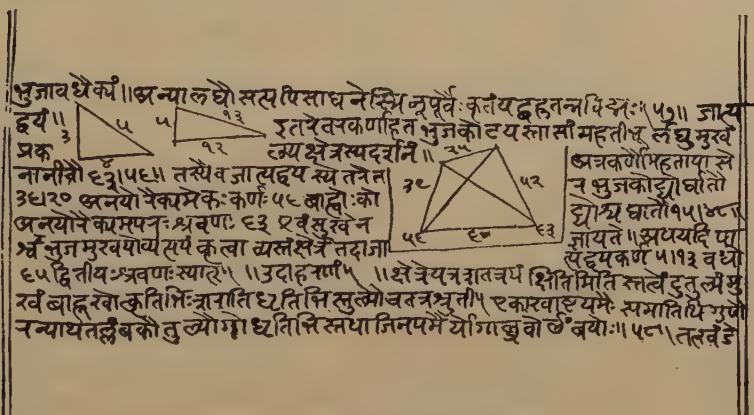 भुजावधैक्यं॥ अन्या लघौ सत्यपि साधनेस्मिन्पूर्वैः कृतं यद्बहुतन्नविद्मः॥५७॥ जात्य
द्वयं॥ ३ ५ ५ १३ इतरेतरकर्णाहत भुजकोटयस्तासां महतीभू र्लघु मुखं
प्रक ४ १२ ल्यक्षेत्रस्यदर्शनं॥ २५ अत्रकर्णौमहताया से
नानीतौ ६३।५६॥ तस्यैव जात्यद्वय स्यतरेत ३९ ५२ र भुजकोट्यो र्घातौ
३६।२० अनयोरैक्यमेकः कर्णः ५६ बाह्वोः को ट्योश्च घातौ १५।४८॥
अनयोरैक्यमपरः श्रवणः ६३ एवं सुखेन ५६ ६० ६३ ज्ञायते॥ अथयदि पा
र्श्वभुजमुखयोर्व्यत्ययं कृत्वा न्यस्तंक्षेत्रं तदाजा त्यद्वयकर्ण ५।१३ वधो
६५ द्वितीयः श्रवणः स्यात्॥ ॥उदाहरणं॥ ॥क्षेत्रेयत्रशतत्रयं क्षितिमिति स्तत्वेंदुतुल्यंमु
खंबाहूखोत्कृतिभिः शरातिधृतिभि स्तुल्यौचतत्रश्रुती। एकाखाष्टयमैः समातिथिगुणै
रन्याथतल्लंबकौतुल्यौगोधृतिभिस्तथा जिनयमैर्योगाच्छ्रवोर्लंबयोः॥५८॥ तत्खंडे